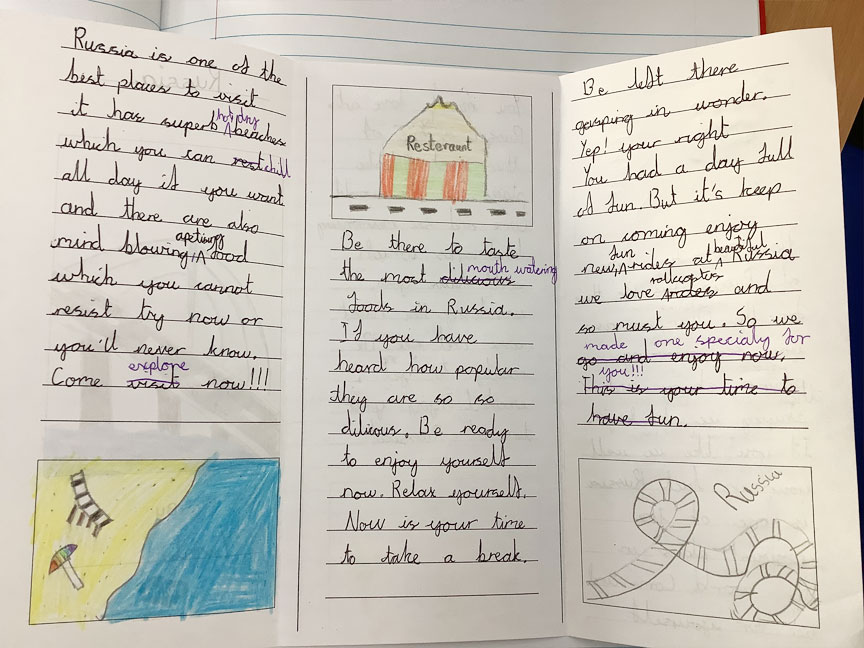 Russia is one of the
best places to visit
it has superb holiday beaches
which you can rest chill
all day if you want
and there are also
mind blowing apetising food
which you cannot
resist try now or
you'll never know.
Come visit explore now!!!
Resteraunt
Be there to taste
the most dilicious mouth watering
foods in Russia.
If you have
heard how popular
they are so so
dilicous. Be ready
to enjoy yourself
now. Relax yourself.
Now is your time
to take a break.
Be left there
gasping in wonder.
Yep! your right
You had a day full
of fun. But it's keep
on coming enjoy
new fun rides at beautiful Russia
we love rides and
so must you. So we
made one specialy for
go and enjoy now.
you!!!
This is your time to
have fun.
Russia